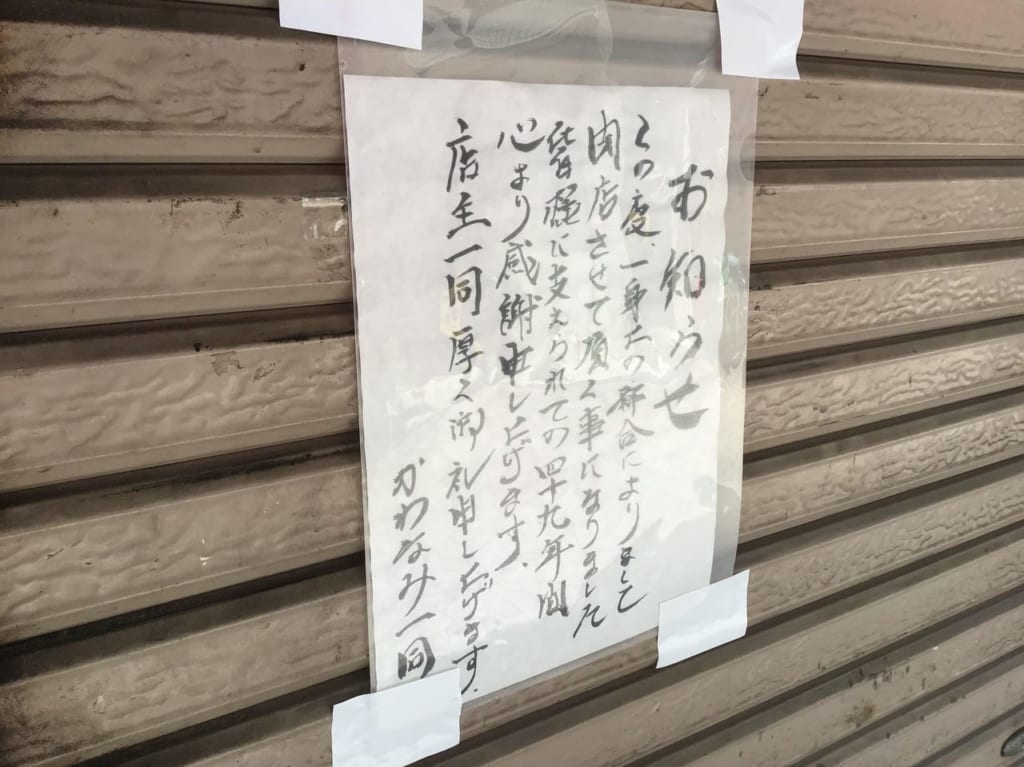 お知らせ
この度、一身上の都合によりまして
閉店させて頂く事になりました
皆様に支えられての四十九年間
心より感謝申し上げます。
店主一同厚く御礼申し上げます。
かわなみ一同